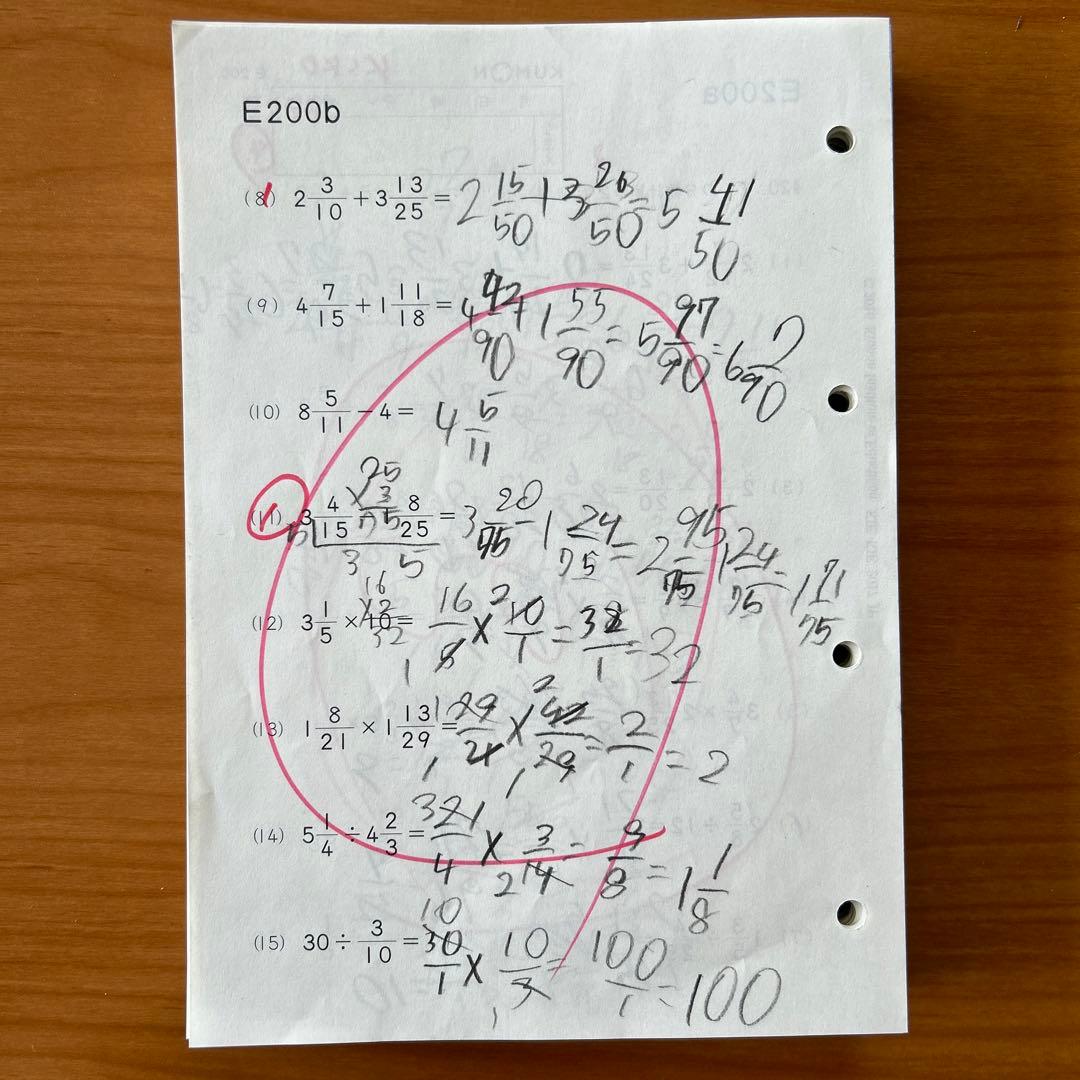 E200b
(8) 2 3/10 + 3 13/25 = 2 15/50 + 3 26/50 = 5 41/50
(9) 4 7/15 + 1 11/18 = 4 42/90 + 1 55/90 = 5 97/90 = 6 7/90
(10) 8 5/11 - 4 = 4 5/11
25
× 3
75
(11) 3 4/15 - 1 8/25 = 3 20/75 - 1 24/75 = 2 95/75 - 1 24/75 = 1 71/75
5 3 5
16
×2
32
(12) 3 1/5 × 10 = 16/5 × 10/1 = 32/1 = 32
(13) 1 8/21 × 1 13/29 = 29/21 × 42/29 = 2/1 = 2
(14) 5 1/4 ÷ 4 2/3 = 21/4 × 3/14 = 9/8 = 1 1/8
(15) 30 ÷ 3/10 = 30/1 × 10/3 = 100/1 = 100